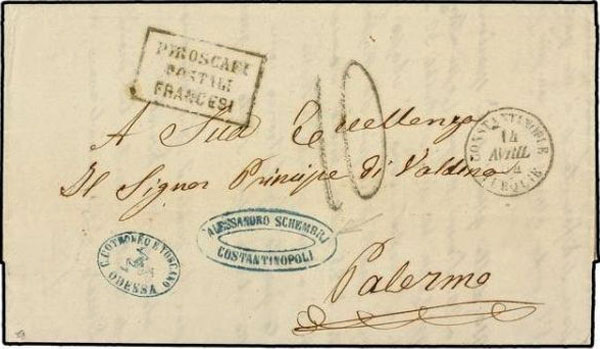 PIROSCAFI
POSTALI
FRANCESI
10
A Sua Eccellenza
Il Signor Principe di Valdina
CONSTANTINOPLE
14
AVRIL
TURQUIE
ALESSANDRO SCHEMBRI
COSTANTINOPOLI
ODESSA
Palermo